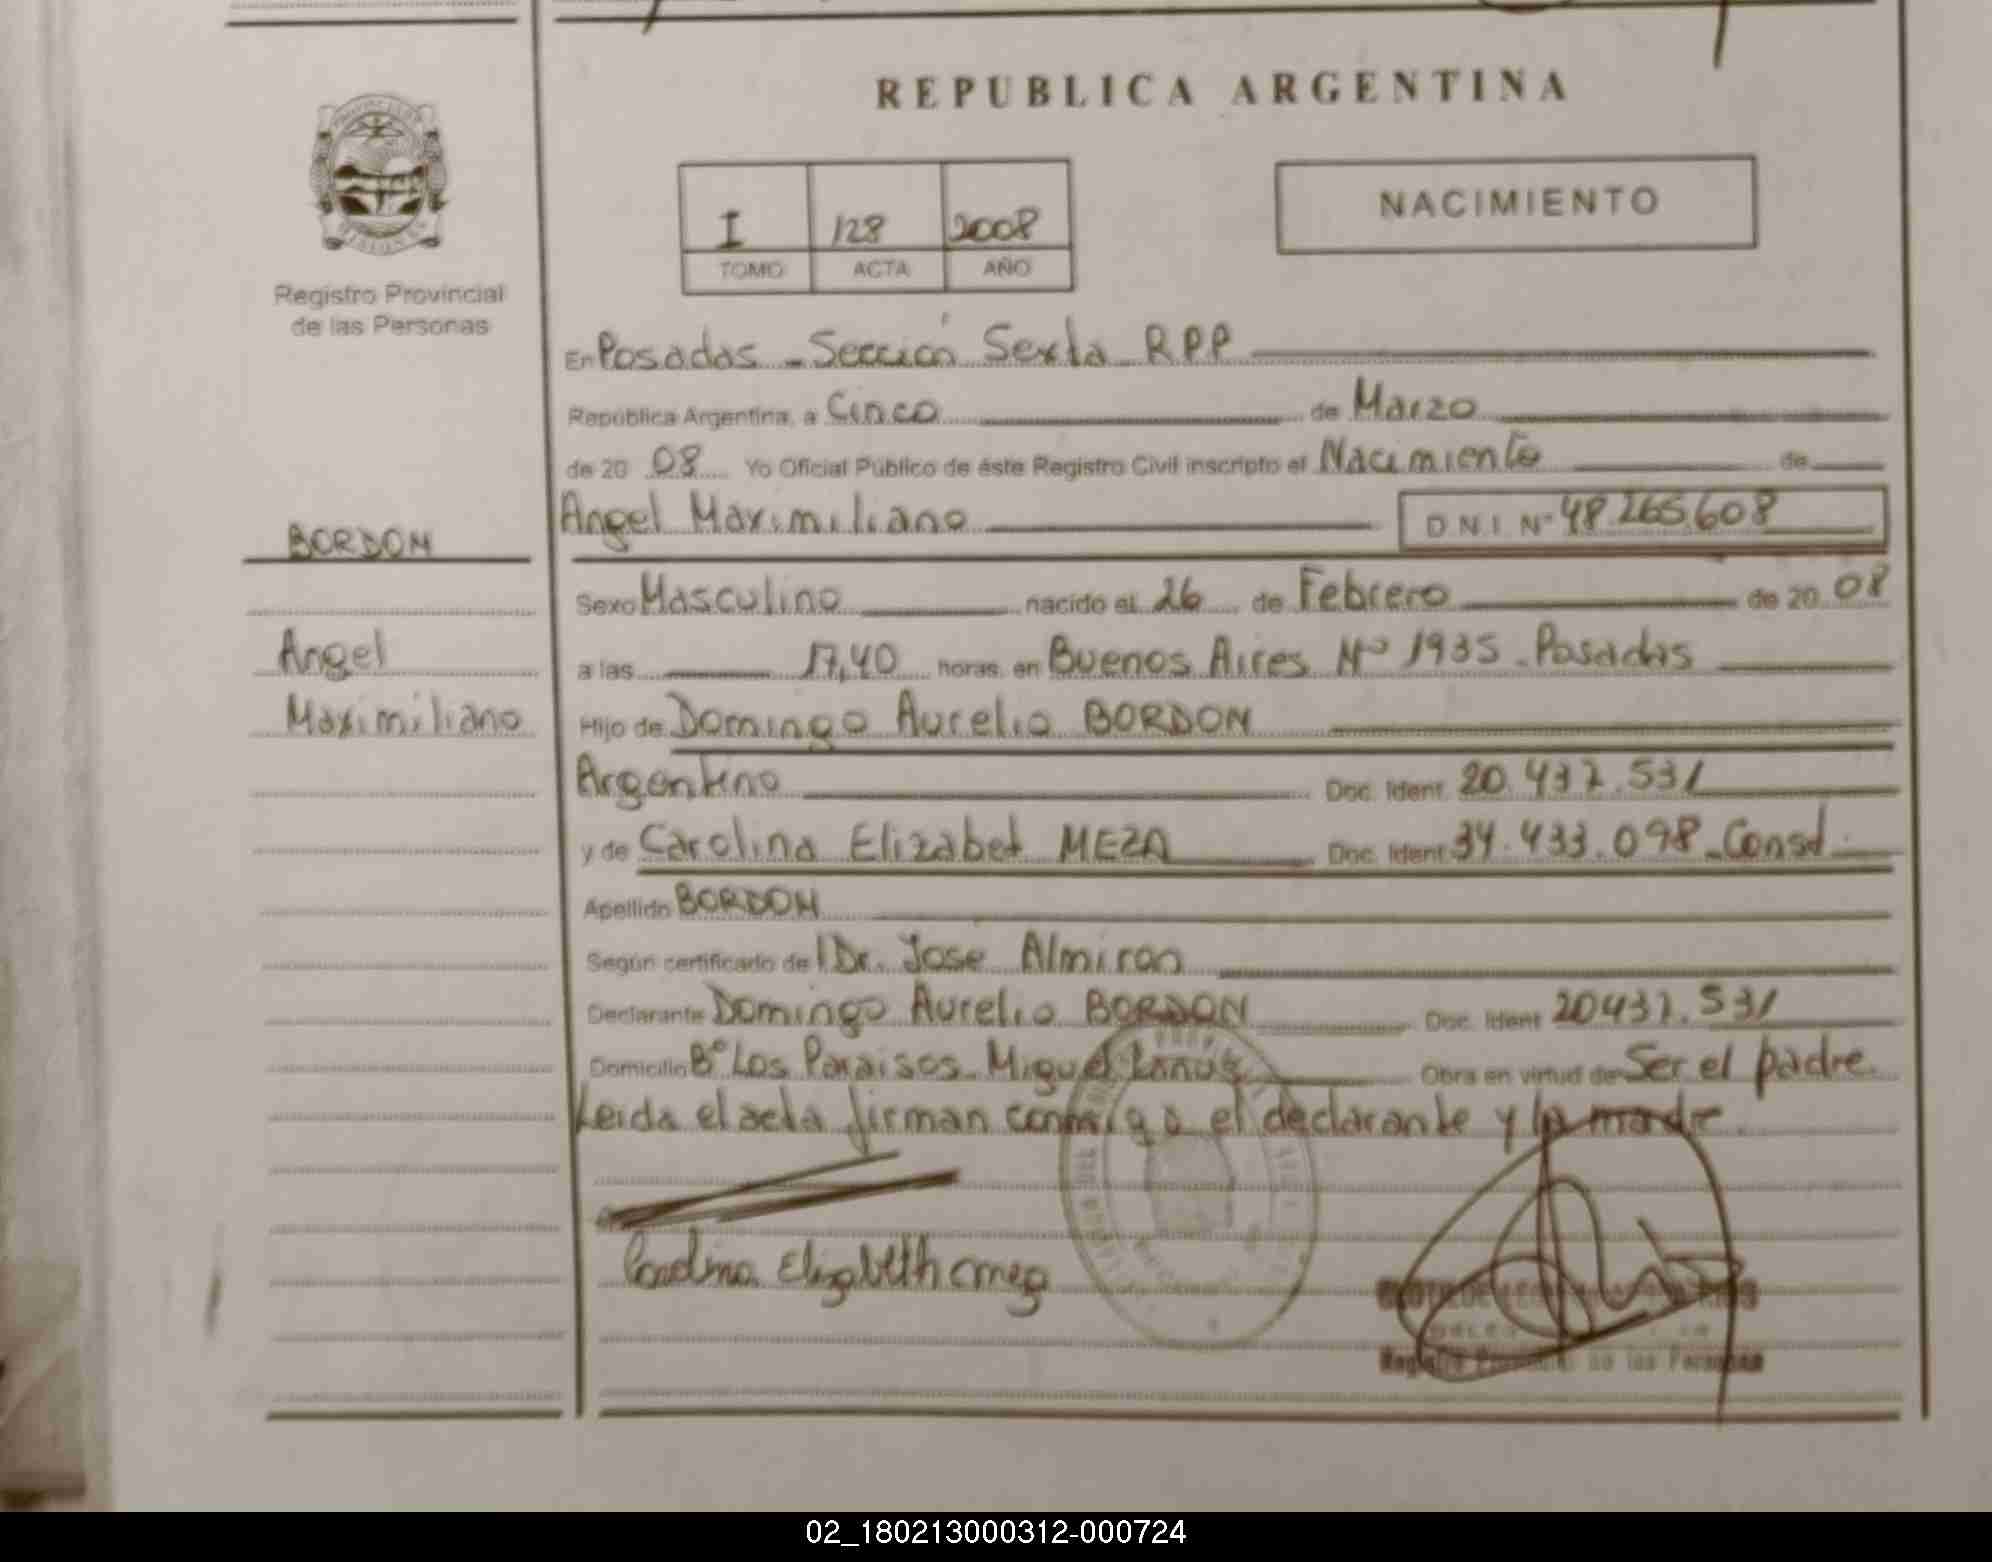 REPUBLICA ARGENTINA
NACIMIENTO
I 128 2008
TOMO ACTA AÑO
Registro Provincial
de las Personas
En Posadas - Sección Sexta RPP
República Argentina, a Cinco de Marzo
de 20 08 Yo Oficial Público de éste Registro Civil inscripto el Nacimiento de
Angel Maximiliano D N I Nº 48.265.608
BORDON
Sexo Masculino nacido el 26 de Febrero de 20 08
Angel
a las 17,40 horas, en Buenos Aires Nº 1935 - Posadas
Maximiliano
Hijo de Domingo Aurelio BORDON
Argentino Doc. Ident. 20.437.531
y de Carolina Elizabet MEZA Doc. Ident. 34.433.098 -
Apellido BORDON
Según certificado de Dr. José Almiron
Declarante Domingo Aurelio BORDON Doc. Ident 20437.531
Domicilio Bº Los Paraisos - Miguel Lanús Obra en virtud de Ser el padre.
Leida el acta firman conmigo el declarante y la madre.
Registro Provincial de las Personas
02_180213000312-000724